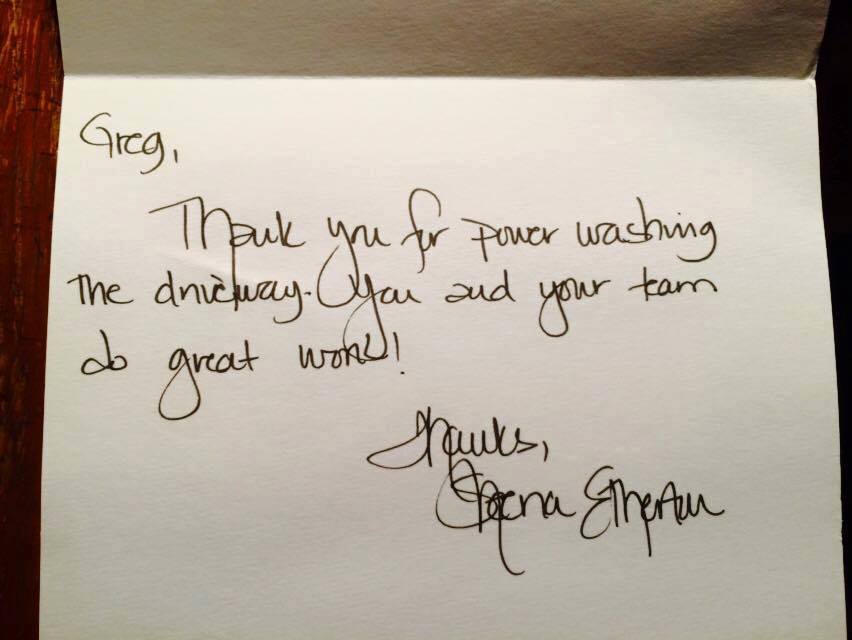 Greg,
Thank you for power washing
the driveway. You and your team
do great work!
Thanks,
Etherton